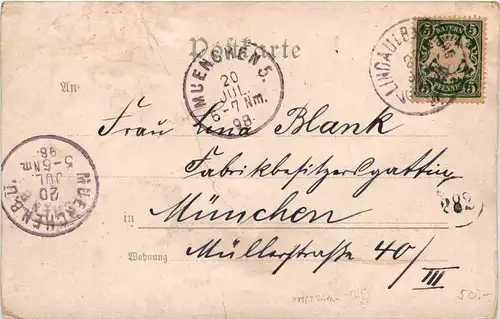 Postkarte
BAYERN
5 5
PFENNIG
LINDAU i. B.
MUENCHEN 5.
20
JUL.
6-7 Nm.
98.
An
Frau Lina Blank
Fabrikbesitzersgattin
in München
Wohnung Müllerstraße 40/III
282
MUENCHEN B.P.
20
JUL
5-6 Nm.
98
50.-